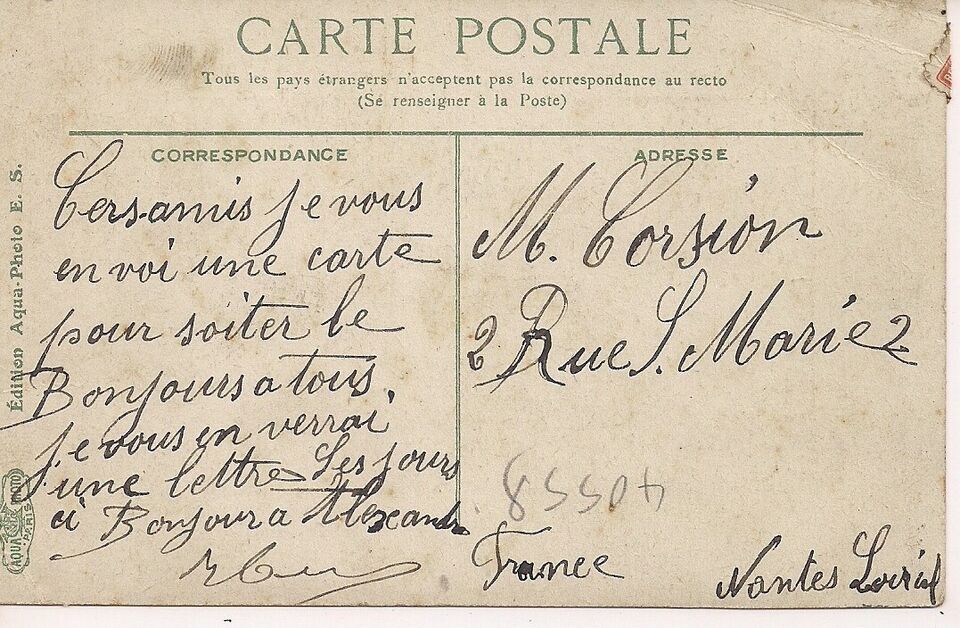 CARTE POSTALE
Tous les pays étrangers n'acceptent pas la correspondance au recto
(Se renseigner à la Poste)
CORRESPONDANCE
Cers-amis je vous
en voi une carte
pour soiter le
Bonjours a tous.
je vous en verrai
une lettre ses jours
ci Bonjour a Alexandre
ADRESSE
M. Corsion
2 Rue S. Marie 2
40558
France
Nantes Loire inf
Édition Aqua-Photo E. S.
AQUA PHOTO
PARIS